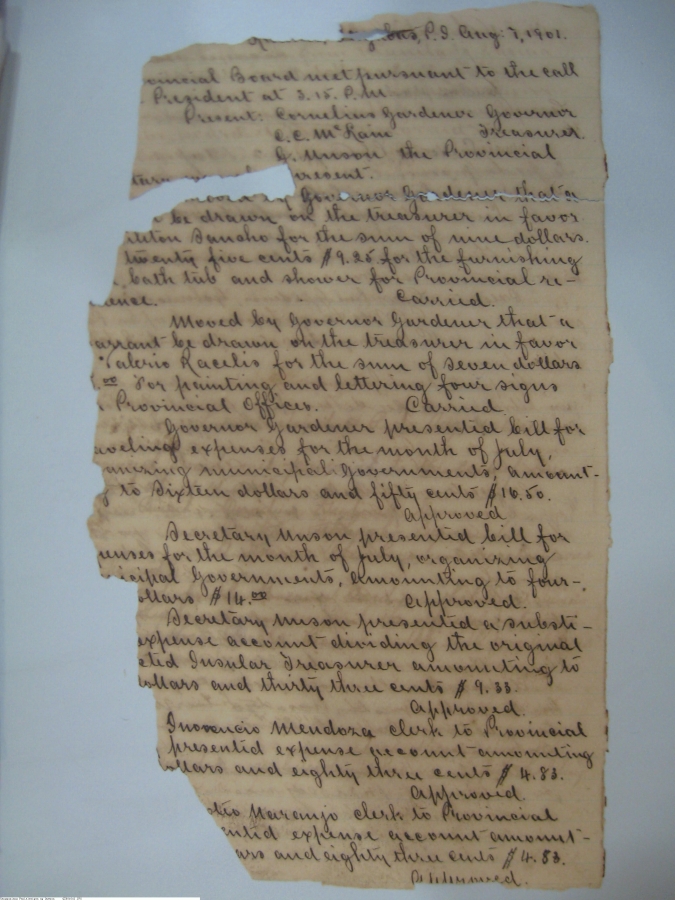 P.I. Aug. 7, 1901.
vincial Board met pursuant to the call
President at 3.15. P.M.
Present: Cornelius Gardener Governor
C.C. McKain Treasurer.
G. Unson the Provincial
resent.
by Governor Gardener that a
be drawn on the treasurer in favor
Sancho for the sum of nine dollars.
twenty five cents $9.25 for the furnishing
bath tub and shower for Provincial re-
ence. Carried.
Moved by Governor Gardener that a
arrant be drawn on the treasurer in favor
Valerio Racelis for the sum of seven dollars
.00 For painting and lettering four signs
Provincial Offices. Carried
Governor Gardener presented bill for
aveling expenses for the month of July,
anizing municipal Governments, amount-
g to Sixteen dollars and fifty cents $16.50.
Approved
Secretary Unson presented bill for
penses for the month of July, organizing
icipal Governments, amounting to four-
ollars $14.00 Approved.
Secretary Unson presented a substi-
expense account dividing the original
cted Insular Treasurer amounting to
dollars and thirty three cents $9.33.
Approved.
Inocencio Mendoza clerk to Provincial
presented expense account amounting
ollars and eighty three cents $4.83.
Approved.
Naranjo clerk to Provincial
ented expense account amount-
ars and eighty three cents $4.83.
Approved.